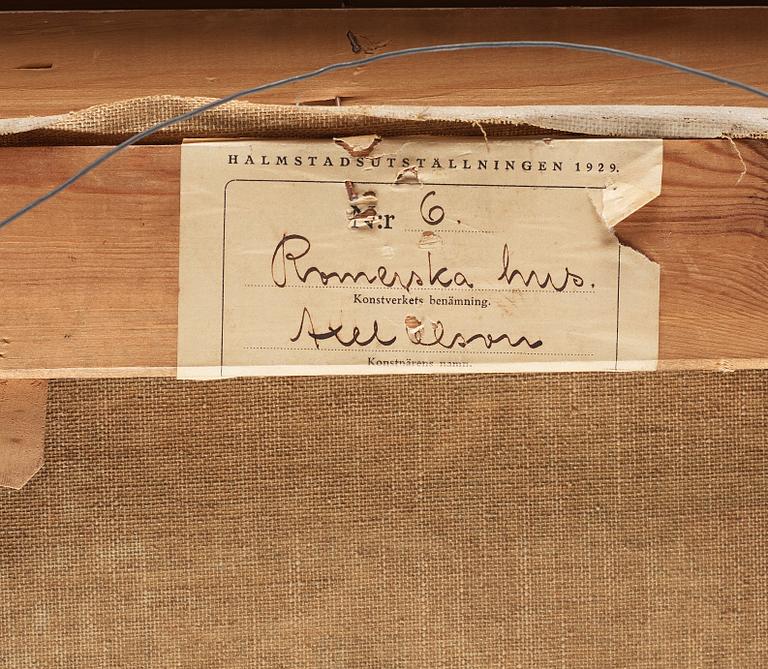 HALMSTADSUTSTÄLLNINGEN 1929.
N:r 6.
Romerska hus.
Konstverkets benämning.
Axel Olson
Konstnärens namn.